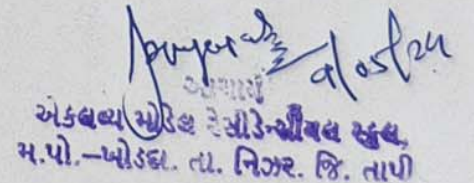 9/05/24
આચાર્ય
એકલવ્ય મોડેલ રેસીડેન્સીયલ સ્કુલ,
મ.પો.-ખોડદા. તા. નિઝર. જિ. તાપી